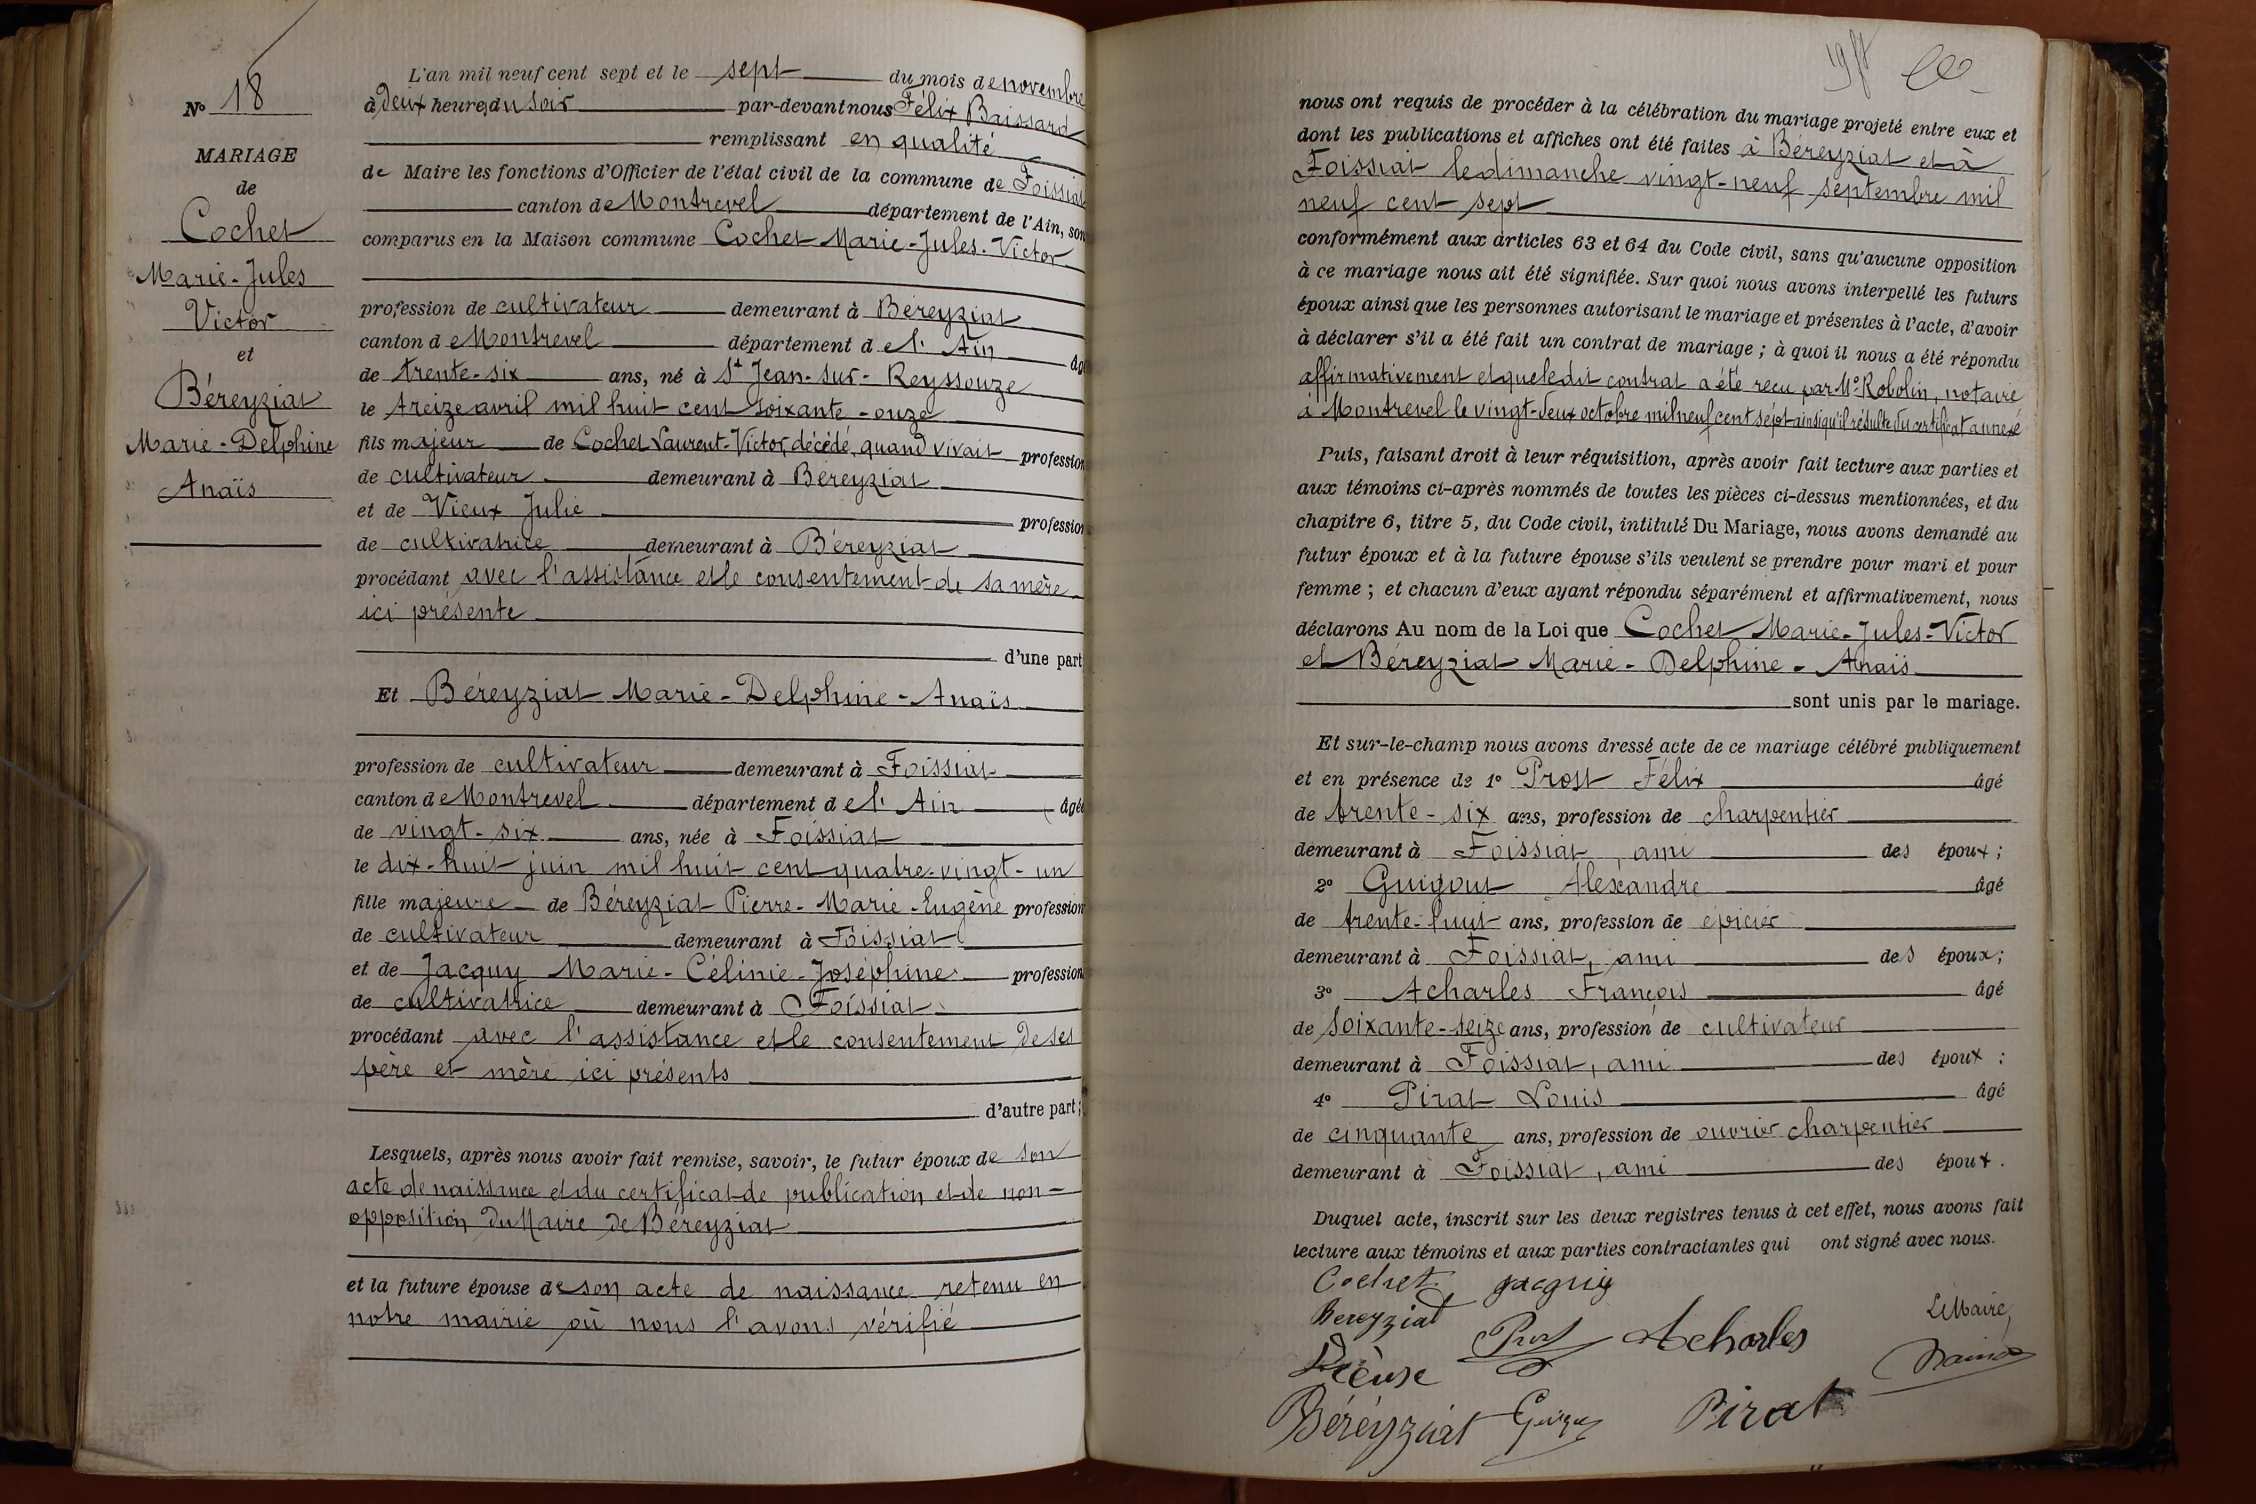 N° 18
MARIAGE
de
Cochet
Marie-Jules
Victor
et
Béreyziat
Marie-Delphine
Anaïs
L'an mil neuf cent sept et le sept du mois de novembre
à deux heures du soir par-devant nous Félix Baissard
remplissant en qualité
de Maire les fonctions d'Officier de l'état civil de la commune de Foissiat
canton de Montrevel département de l'Ain, son
comparus en la Maison commune Cochet Marie-Jules-Victor
profession de cultivateur demeurant à Béreyziat
canton de Montrevel département de l'Ain âgé
de trente-six ans, né à St Jean-sur-Reyssouze
le treize avril mil huit cent soixante-onze
fils majeur de Cochet Laurent-Victor, décédé, quand vivait profession
de cultivateur demeurant à Béreyziat
et de Vieux Julie profession
de cultivatrice demeurant à Béreyziat
procédant avec l'assistance et le consentement de sa mère
ici présente
d'une part
Et Béreyziat Marie-Delphine-Anaïs
profession de cultivateur demeurant à Foissiat
canton de Montrevel département de l'Ain âgée
de vingt-six ans, née à Foissiat
le dix-huit juin mil huit cent quatre-vingt-un
fille majeure de Béreyziat Pierre-Marie-Eugène profession
de cultivateur demeurant à Foissiat
et de Jacquy Marie-Célinie-Joséphine profession
de cultivatrice demeurant à Foissiat
procédant avec l'assistance et le consentement de ses
père et mère ici présents
d'autre part;
Lesquels, après nous avoir fait remise, savoir, le futur époux de son
acte de naissance et du certificat de publication et de non-
opposition du Maire de Béreyziat
et la future épouse de son acte de naissance retenu en
notre mairie où nous l'avons vérifié
nous ont requis de procéder à la célébration du mariage projeté entre eux et
dont les publications et affiches ont été faites à Béreyziat et à
Foissiat le dimanche vingt-neuf septembre mil
neuf cent sept
conformément aux articles 63 et 64 du Code civil, sans qu'aucune opposition
à ce mariage nous ait été signifiée. Sur quoi nous avons interpellé les futurs
époux ainsi que les personnes autorisant le mariage et présentes à l'acte, d'avoir
à déclarer s'il a été fait un contrat de mariage ; à quoi il nous a été répondu
affirmativement et que le dit contrat a été reçu par Me Robolin, notaire
à Montrevel le vingt-deux octobre mil neuf cent sept ainsi qu'il résulte du certificat annexé
Puis, faisant droit à leur réquisition, après avoir fait lecture aux parties et
aux témoins ci-après nommés de toutes les pièces ci-dessus mentionnées, et du
chapitre 6, titre 5, du Code civil, intitulé Du Mariage, nous avons demandé au
futur époux et à la future épouse s'ils veulent se prendre pour mari et pour
femme ; et chacun d'eux ayant répondu séparément et affirmativement, nous
déclarons Au nom de la Loi que Cochet Marie-Jules-Victor
et Béreyziat Marie-Delphine-Anaïs
sont unis par le mariage.
Et sur-le-champ nous avons dressé acte de ce mariage célébré publiquement
et en présence de 1° Prost Félix âgé
de trente-six ans, profession de charpentier
demeurant à Foissiat, ami des époux ;
2° Guigout Alexandre âgé
de trente-huit ans, profession de épicier
demeurant à Foissiat, ami des époux ;
3° Acharles François âgé
de soixante-seize ans, profession de cultivateur
demeurant à Foissiat, ami des époux :
4° Pirat Louis âgé
de cinquante ans, profession de ouvrier charpentier
demeurant à Foissiat, ami des époux.
Duquel acte, inscrit sur les deux registres tenus à cet effet, nous avons fait
lecture aux témoins et aux parties contractantes qui ont signé avec nous.
Cochet Jacquiy
Bereyziat Le Maire,
Prost Acharles
Béréyziat Pirat